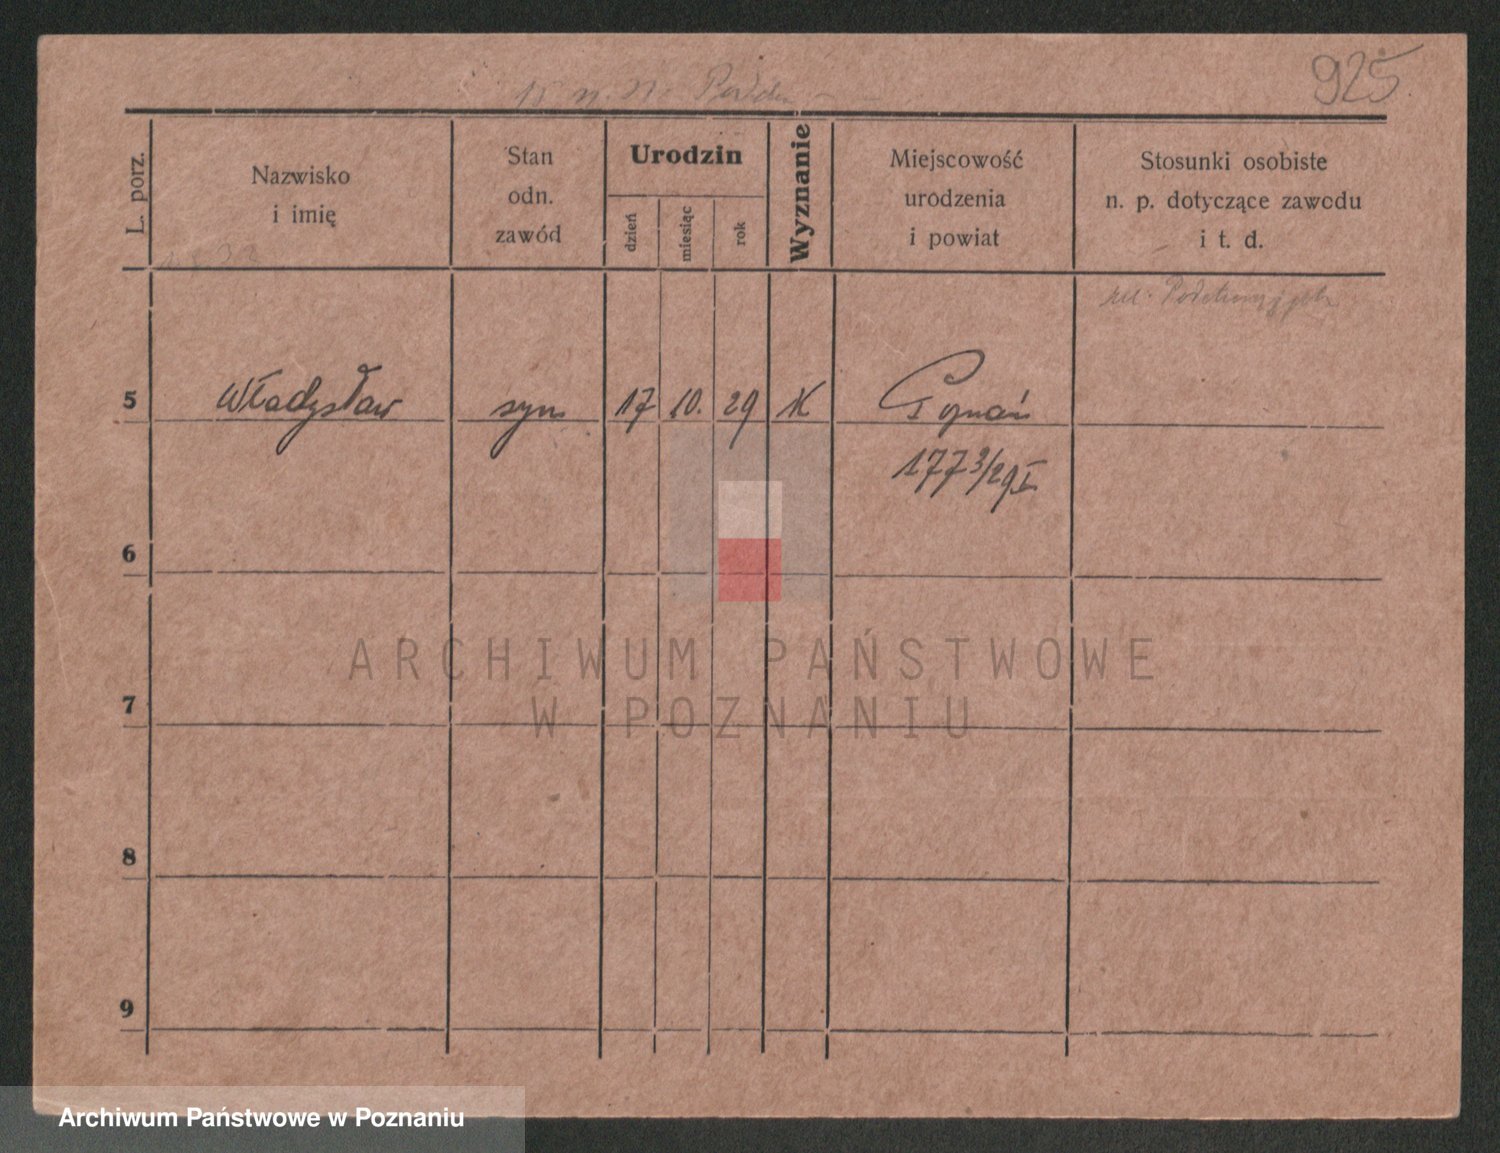 925
L. porz.
Nazwisko
i imię
Stan
odn.
zawód
Urodzin
dzień
miesiąc
rok
Wyznanie
Miejscowość
urodzenia
i powiat
Stosunki osobiste
n. p. dotyczące zawodu
i t. d.
5 Władysław syn 17 10. 29 K Poznań
1773/29 I
6
7
8
9
ARCHIWUM PAŃSTWOWE
W POZNANIU
Archiwum Państwowe w Poznaniu